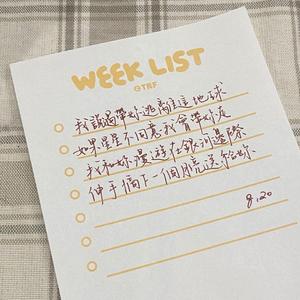 WEEK LIST
@TRF
我說過帶妳逃離這地球
如果星星不同意我會帶妳走
我和妳漫遊在銀河邊際
伸手摘下一個月亮送給妳
8.20